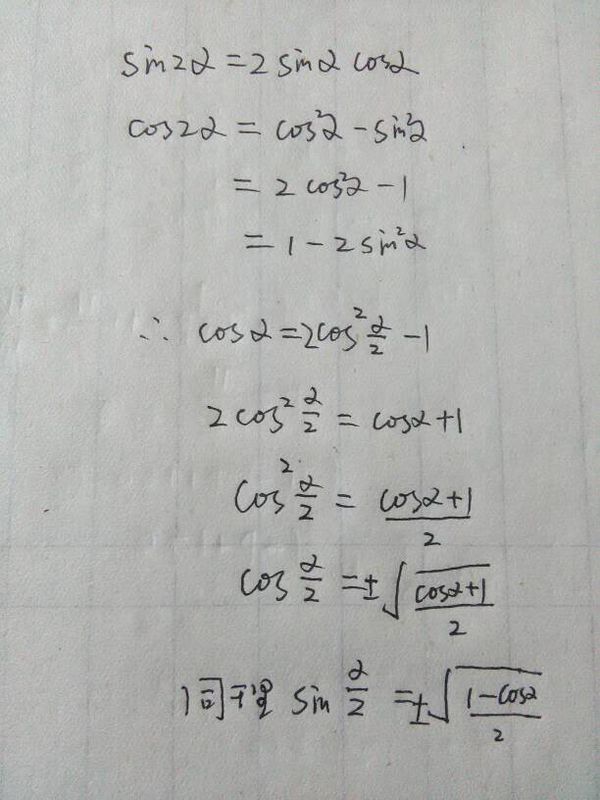 sin2α=2sinαcosα
cos2α=cos²α-sin²α
=2cos²α-1
=1-2sin²α
∴cosα=2cos²α/2-1
2cos²α/2=cosα+1
cos²α/2=(cosα+1)/2
cosα/2=±√((cosα+1)/2)
同理 sinα/2=±√((1-cosα)/2)